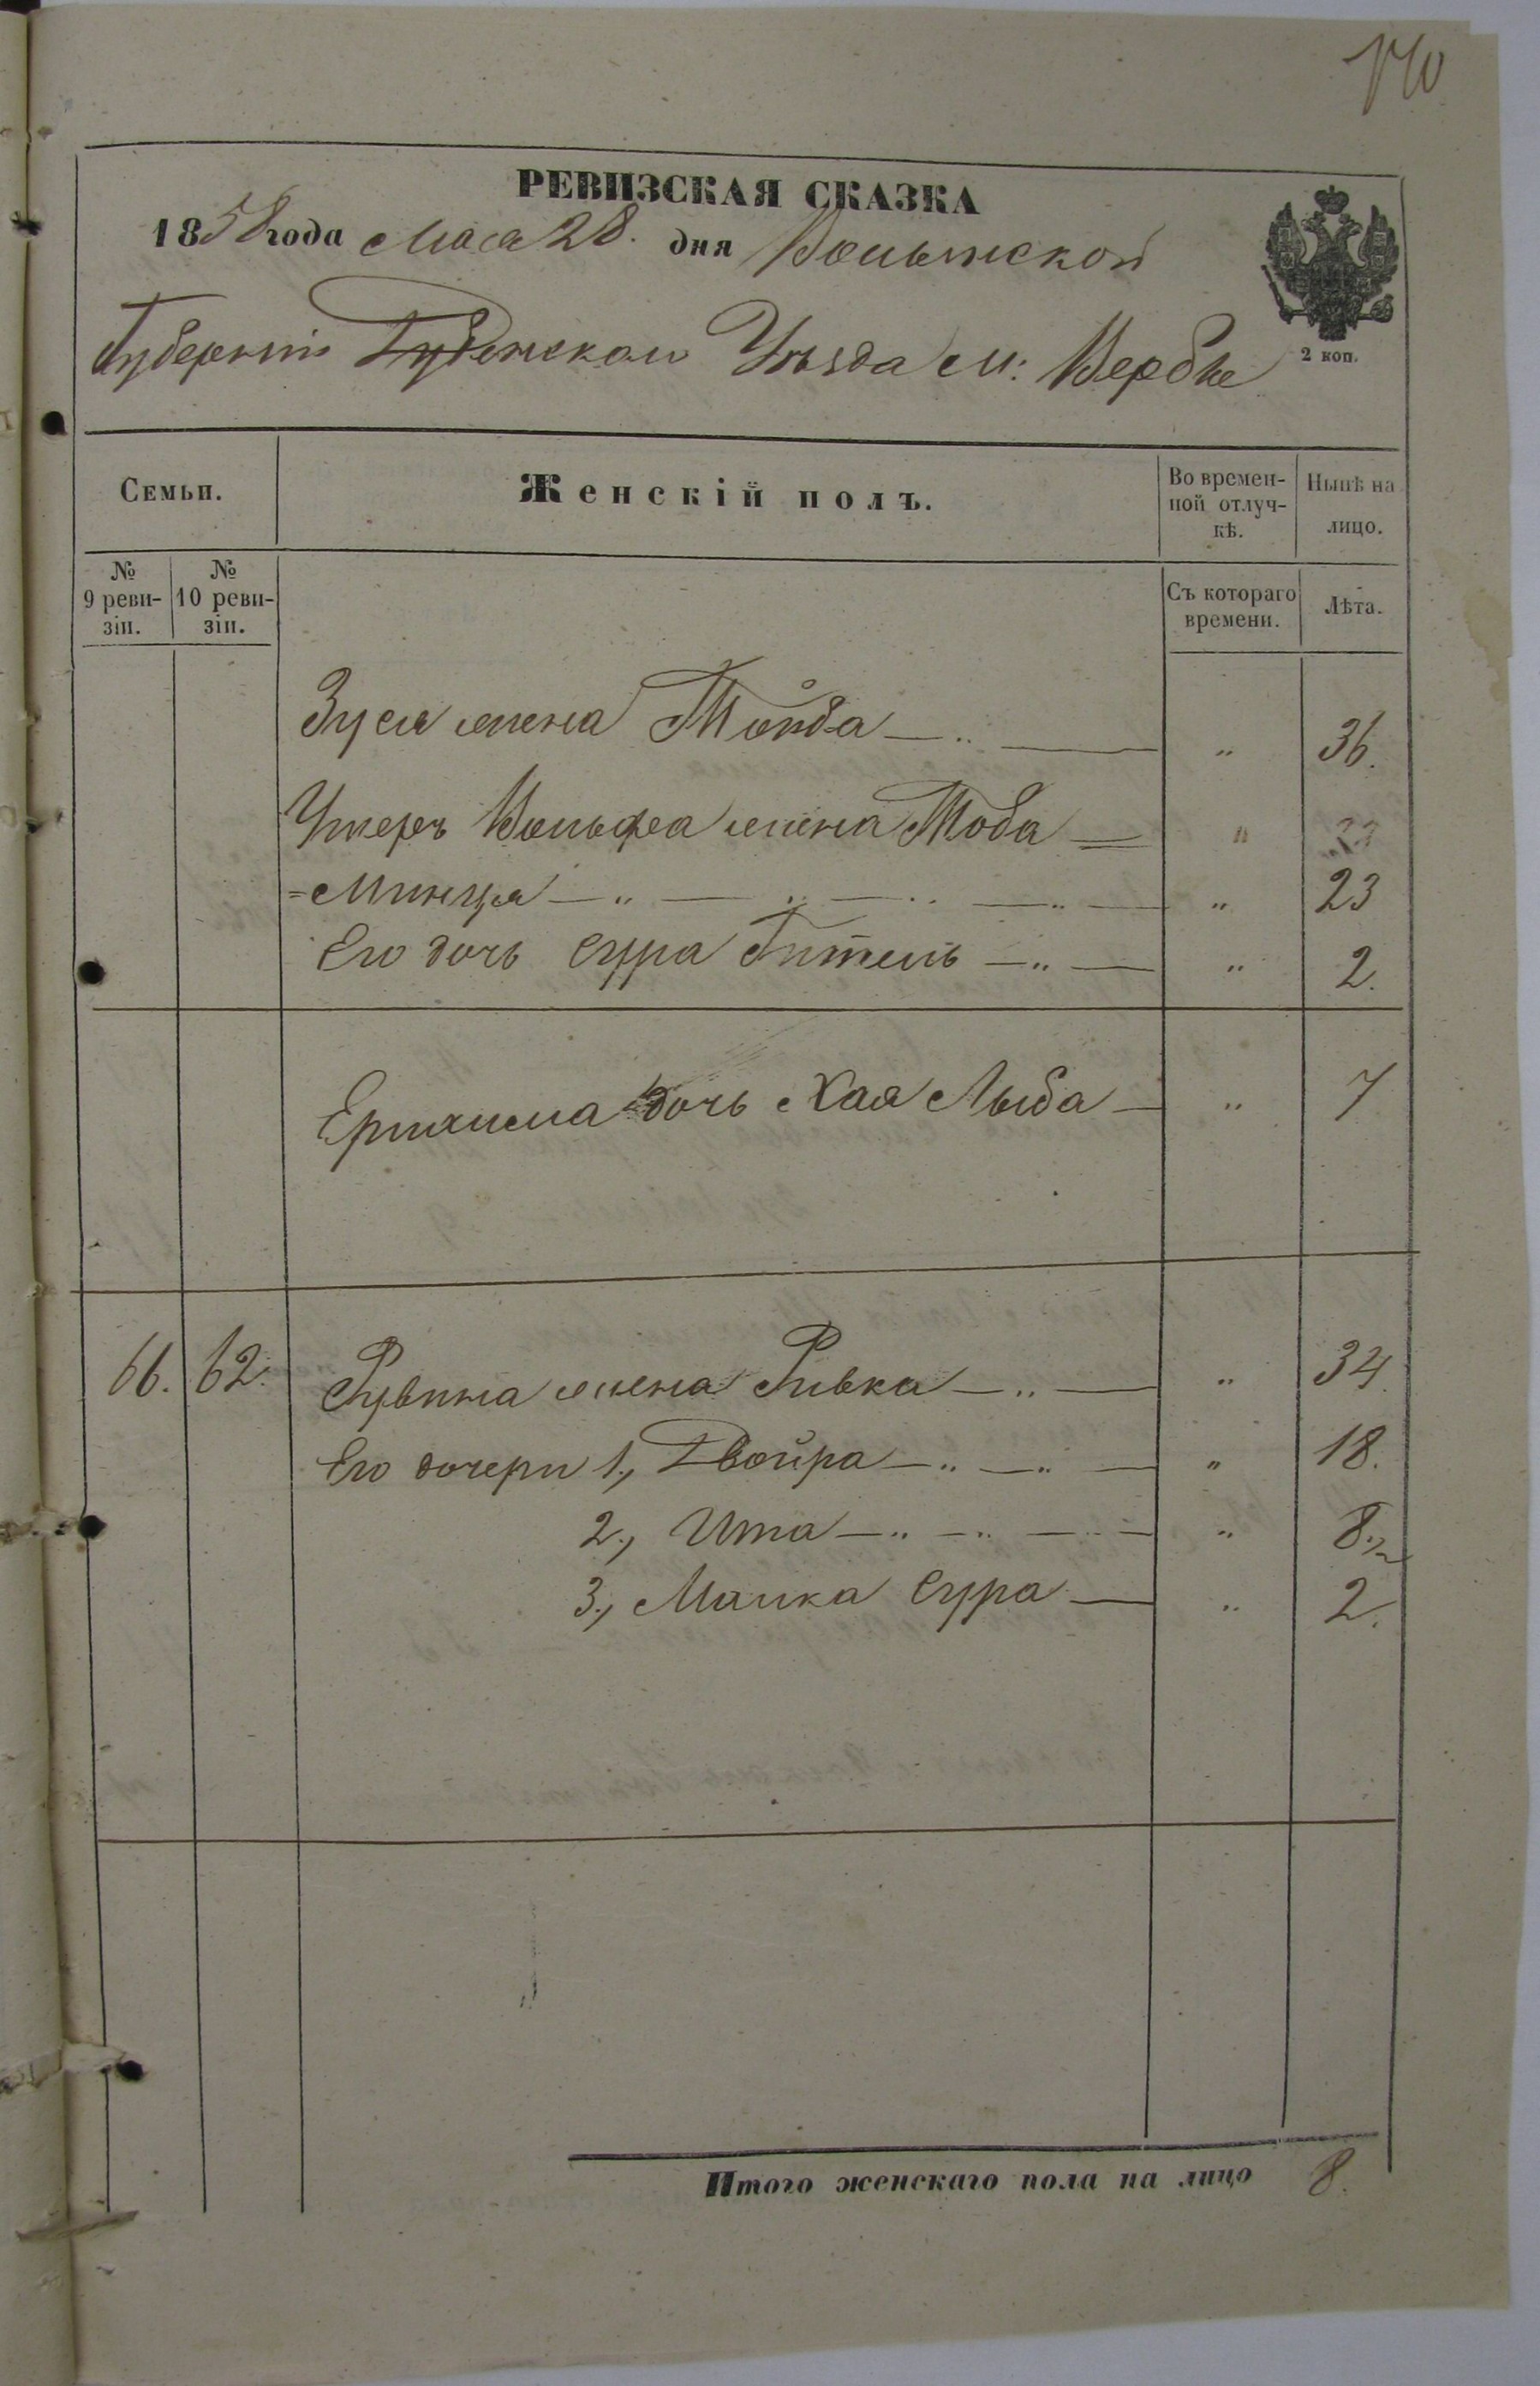 170
РЕВИЗСКАЯ СКАЗКА
1858 года Мая 28. дня Волынской
Губерніи Дубенскаго Уѣзда м: Вербѣ
2 коп.
Семьи.
Женскій полъ.
Во времен-
ной отлуч-
кѣ.
Нынѣ на
лицо.
№
9 реви-
зіи.
№
10 реви-
зіи.
Съ котораго
времени.
Лѣта.
Зуся жена Тойба — „ — „ 36.
Вольфа жена Тоба — „
Минця — „ — „ — „ — „ — „ 23
Его дочь Сура Гитель — „ — „ 2.
дочь Хая Лыба — „ 7
66. 62. Рувина жена Ривка — „ — „ 34.
Его дочери 1., Двойра — „ — „ — „ 18.
2., Ита — „ — „ — „ — „ 8.
3., Малка Сура — „ 2.
Итого женскаго пола на лицо 8.